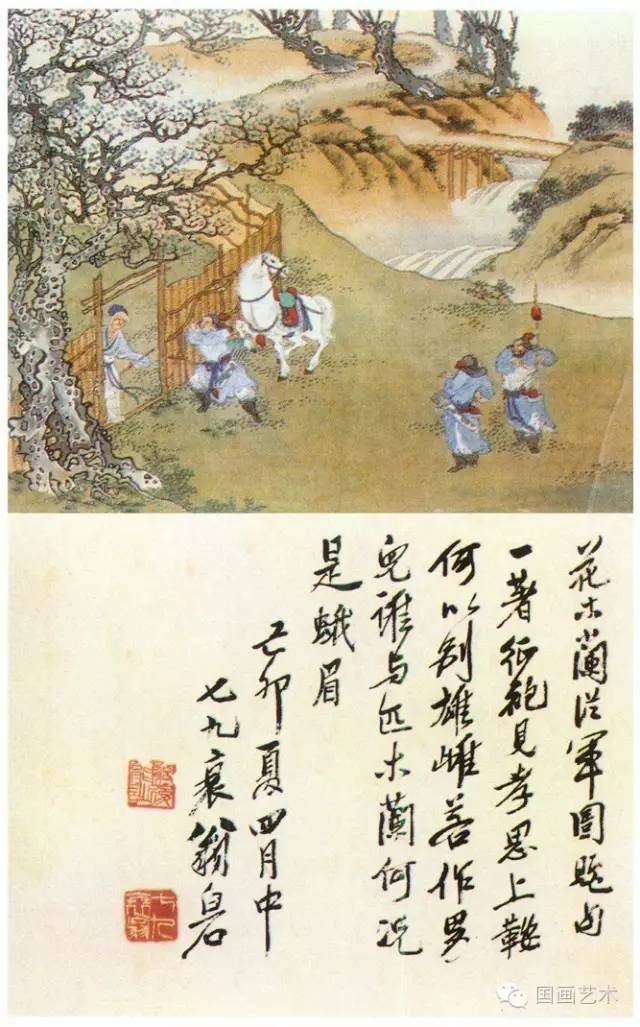 花木蘭從軍圖題句
一著征袍見孝思上鞍
何以别雄雌善作男
兒誰与匹木蘭何況
是蛾眉
己卯夏四月中
七九衰翁
七九衰翁
国画艺术